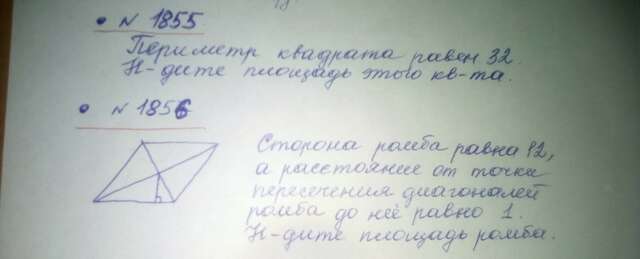 • N 1855
Периметр квадрата равен 32.
Н-дите площадь этого кв-та.
• N 1856
Сторона ромба равна 12,
а расстояние от точки
пересечения диагоналей
ромба до неё равно 1.
Н-дите площадь ромба.